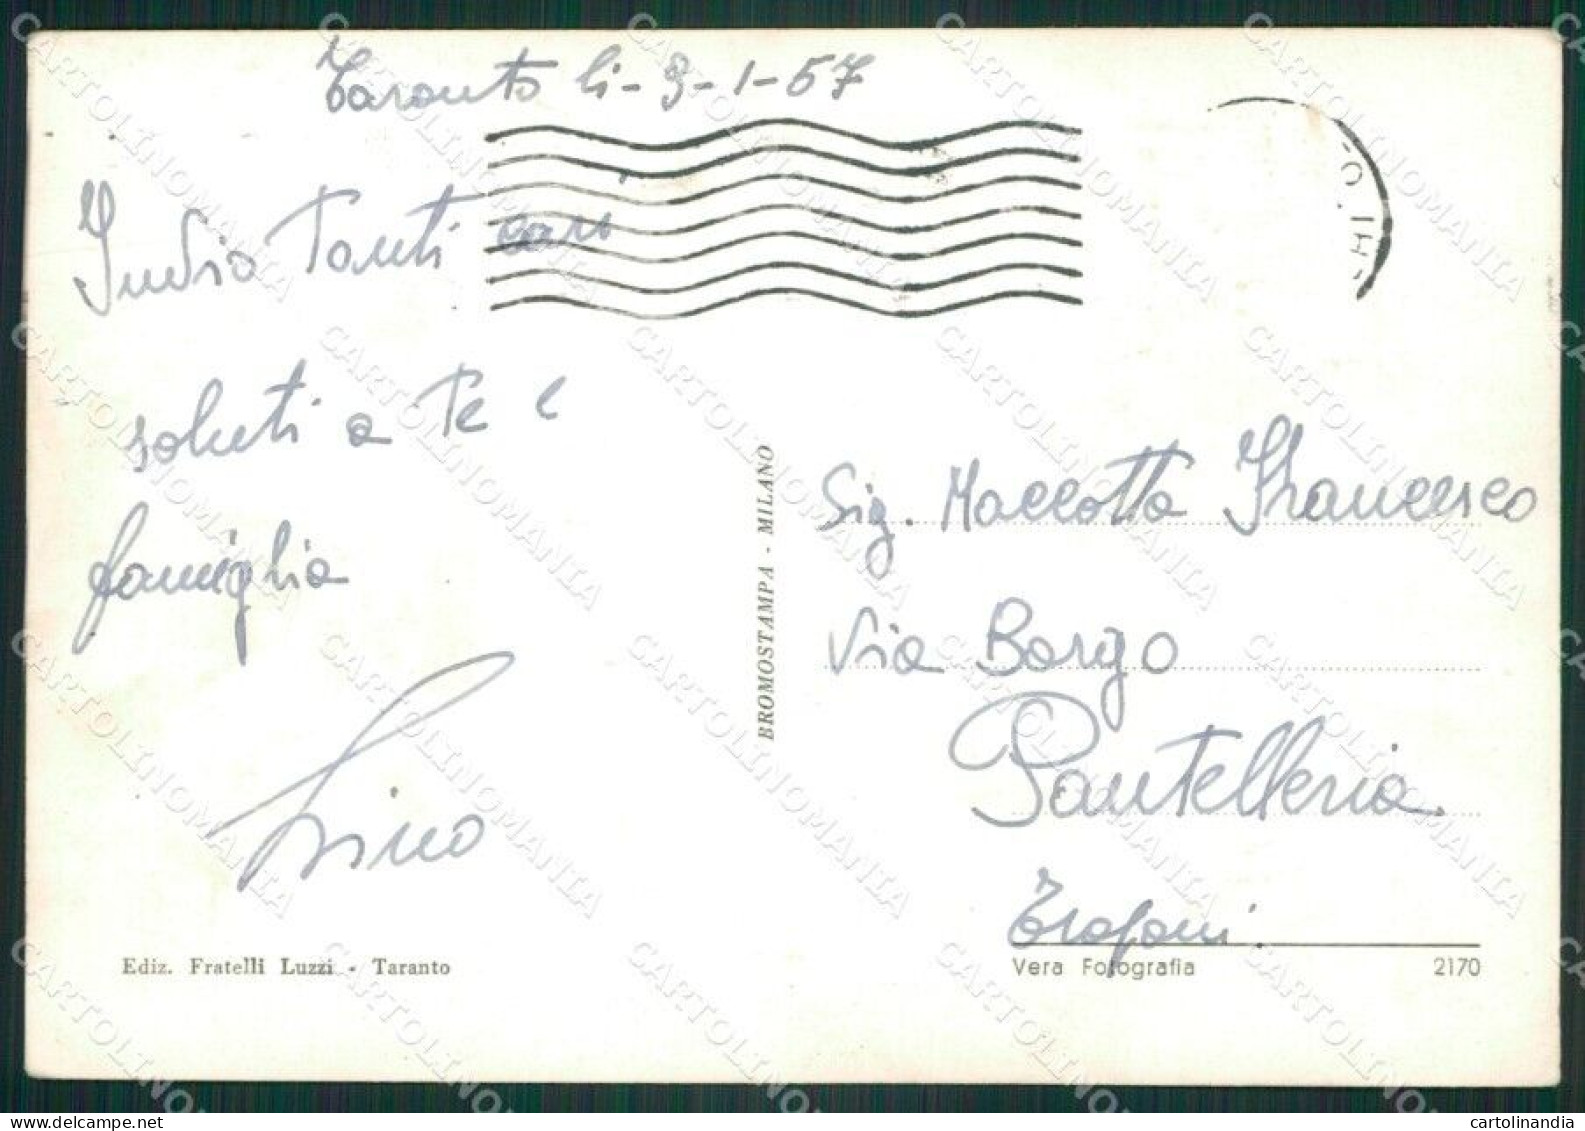 Taranto li - 9 - 1 - 57
Invio Tanti cari
saluti a Te e
famiglia
Lino
Ediz. Fratelli Luzzi - Taranto
BROMOSTAMPA - MILANO
Sig. Maccotta Francesco
Via Borgo
Pantelleria
Trapani.
Vera Fotografia 2170
CARTOLINOMANIA
cartolinandia